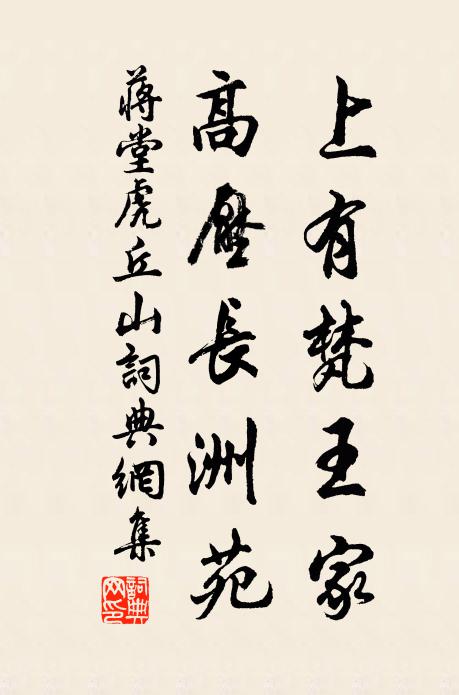 上有梵王家
高壓長洲苑
蔣堂虎丘山詞典網集
詞典網印